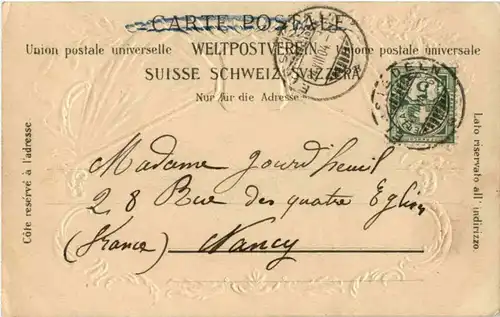 CARTE POSTALE
Union postale universelle WELTPOSTVEREIN Unione postale universale
SUISSE SCHWEIZ SVIZZERA
Nur für die Adresse
Côte reservé à l'adresse
Lato riservato all' indirizzo.
Madame Jourd'heuil
28 Rue des quatre Eglises
(France) Nancy
5